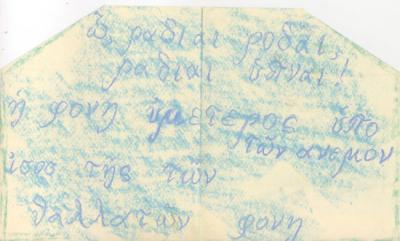 ὦ ραδιαι ροδαι,
ραδιαι ὑπναι!
ἡ φονη ὑμετερος ὑπο
τῶν ανεμον
ὑπο τῆς τῶν
θαλλατῶν φονη